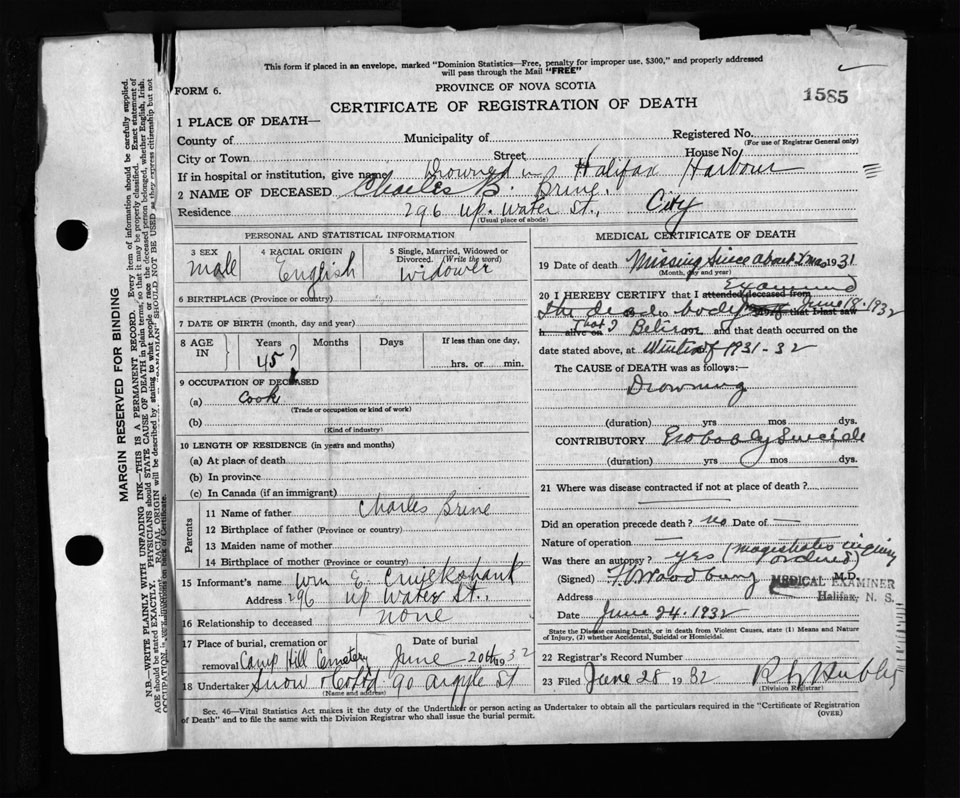 This form if placed in an envelope, marked "Dominion Statistics—Free, penalty for improper use, $300," and properly addressed
will pass through the Mail "FREE"
FORM 6.
PROVINCE OF NOVA SCOTIA
CERTIFICATE OF REGISTRATION OF DEATH
1585
1 PLACE OF DEATH—
County of
Municipality of
Registered No.
(For use of Registrar General only)
City or Town
Street
House No.
If in hospital or institution, give name Drowned in Halifax Harbour
2 NAME OF DECEASED Charles B. Brine.
Residence 296 up. Water St., City
(Usual place of abode)
PERSONAL AND STATISTICAL INFORMATION
3 SEX
male
4 RACIAL ORIGIN
English
5 Single, Married, Widowed or
Divorced. (Write the word)
widower
6 BIRTHPLACE (Province or country)
7 DATE OF BIRTH (month, day and year)
8 AGE IN
Years
Months
Days
If less than one day,
45?
hrs. or min.
9 OCCUPATION OF DECEASED
(a) Cook
(Trade or occupation or kind of work)
(b)
(Kind of industry)
10 LENGTH OF RESIDENCE (in years and months)
(a) At place of death
(b) In province
(c) In Canada (if an immigrant)
Parents
11 Name of father Charles Brine
12 Birthplace of father (Province or country)
13 Maiden name of mother
14 Birthplace of mother (Province or country)
15 Informant's name Wm E. Cruickshank
Address 296 up Water St.,
16 Relationship to deceased none
17 Place of burial, cremation or
removal Camp Hill Cemetery
Date of burial
June 20th 1932
18 Undertaker Snow & Co Ltd 90 Argyle St
(Name and address)
MEDICAL CERTIFICATE OF DEATH
19 Date of death Missing since about 1931
(Month, day and year)
20 I HEREBY CERTIFY that I attended deceased from Examined
the dead body June 18. 1932
that I last saw
h alive on that I Believe and that death occurred on the
date stated above, at Winter of 1931-32
The CAUSE OF DEATH was as follows:—
Drowning
(duration) yrs mos dys.
CONTRIBUTORY Probably Suicide
(duration) yrs mos dys.
21 Where was disease contracted if not at place of death?
Did an operation precede death? no Date of —
Nature of operation —
Was there an autopsy? yes (magistrates inquiry
ordered)
(Signed) Woodbury M.D.
MEDICAL EXAMINER
Address
Halifax, N. S.
Date June 24. 1932
State the Disease causing Death, or in death from Violent Causes, state (1) Means and Nature
of Injury, (2) whether Accidental, Suicidal or Homicidal.
22 Registrar's Record Number
23 Filed June 28 1932
(Division Registrar)
Sec. 46—Vital Statistics Act makes it the duty of the Undertaker or person acting as Undertaker to obtain all the particulars required in the "Certificate of Registration
of Death" and to file the same with the Division Registrar who shall issue the burial permit.
(OVER)
MARGIN RESERVED FOR BINDING
N.B.—WRITE PLAINLY WITH UNFADING INK—THIS IS A PERMANENT RECORD. Every item of information should be carefully supplied.
AGE should be stated EXACTLY. PHYSICIANS should STATE CAUSE OF DEATH in plain terms, so that it may be properly classified. Exact statement of